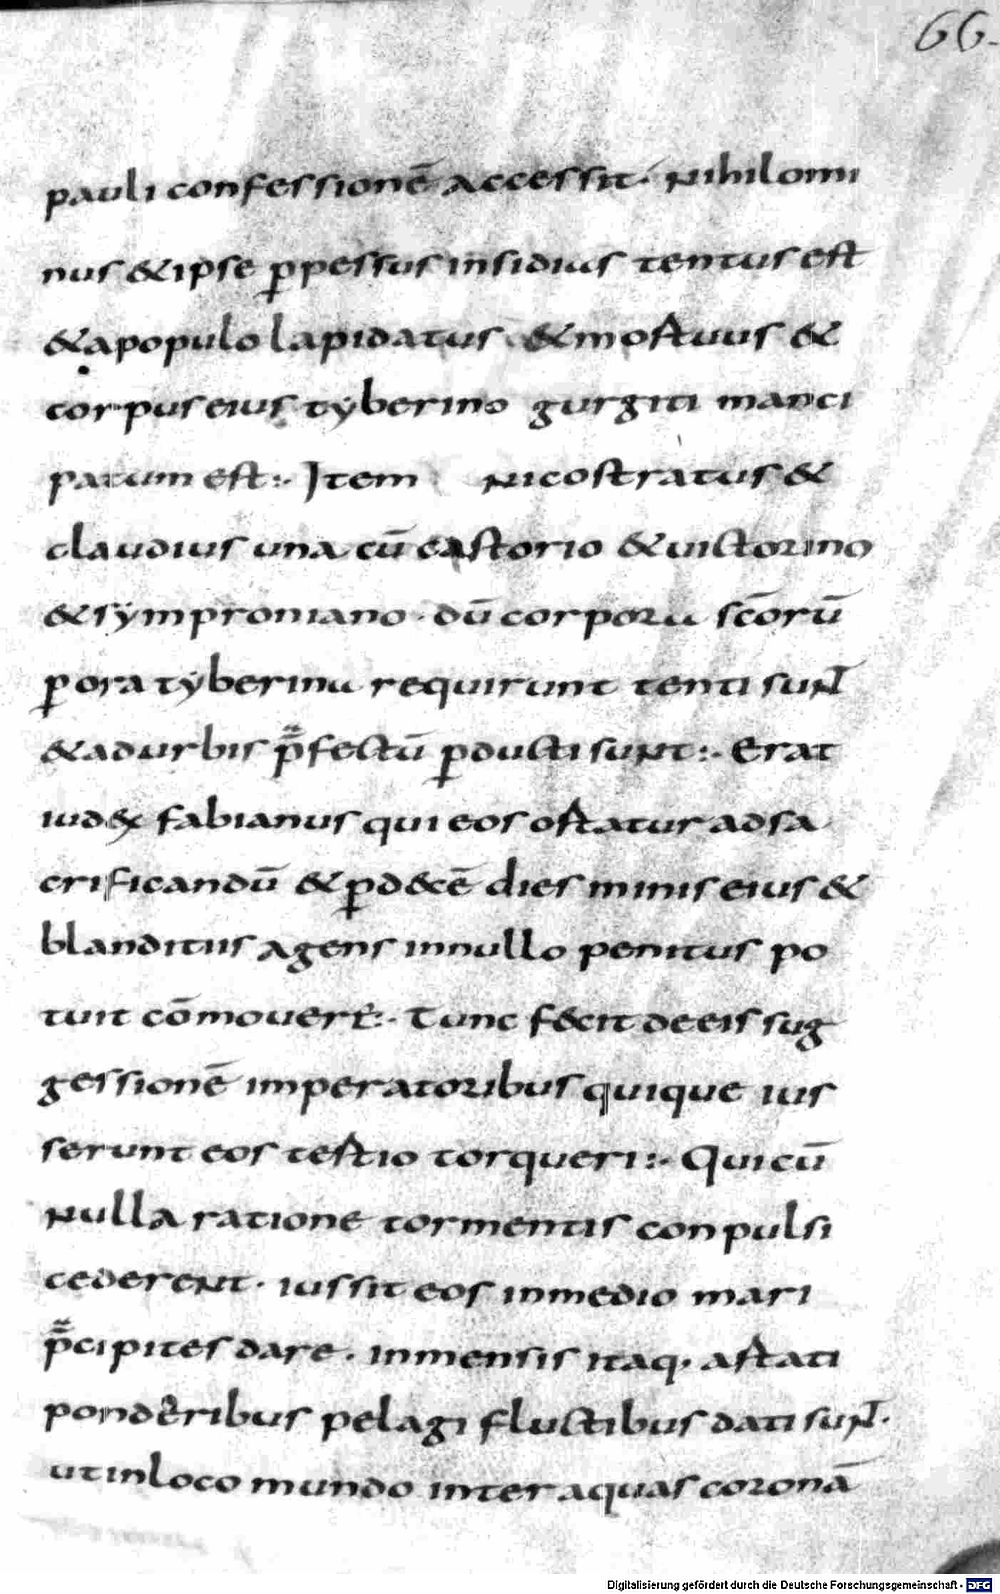 66.
pauli confessionē accessit. Nihilomi
nus &ipse ꝑpessus insidias tentus est
&apopulo lapidatus &mostuus &
corpus eius tyberino gurgiti manci
patum est:. Item Nicostratus &
claudius una cū castorio &uictorino
&symproniano. dū corpora scōrū
ꝑ ora tyberina requirunt tenti suNT
&adurbis p̄fectū ꝑducti suNt:. Erat
iudex fabianus qui eos ostatur adsa
crificandū &ꝑd&cē dies minis eius &
blanditiis agens innullo penitus po
tuit cōmouere:. Tunc f&cit deeis sug
gessionē imperatoribus quique ius
serunt eos testio torqueri:. Qui cū
Nulla ratione tormentis conpulsi
cedereNt. iussit eos inmedio mari
p̄cipites dare. inmensis itaq. astati
ponderibus pelagi fluctibus dati suNT.
ut inloco mundo inter aquas coronā
Digitalisierung gefördert durch die Deutsche Forschungsgemeinschaft - DFG